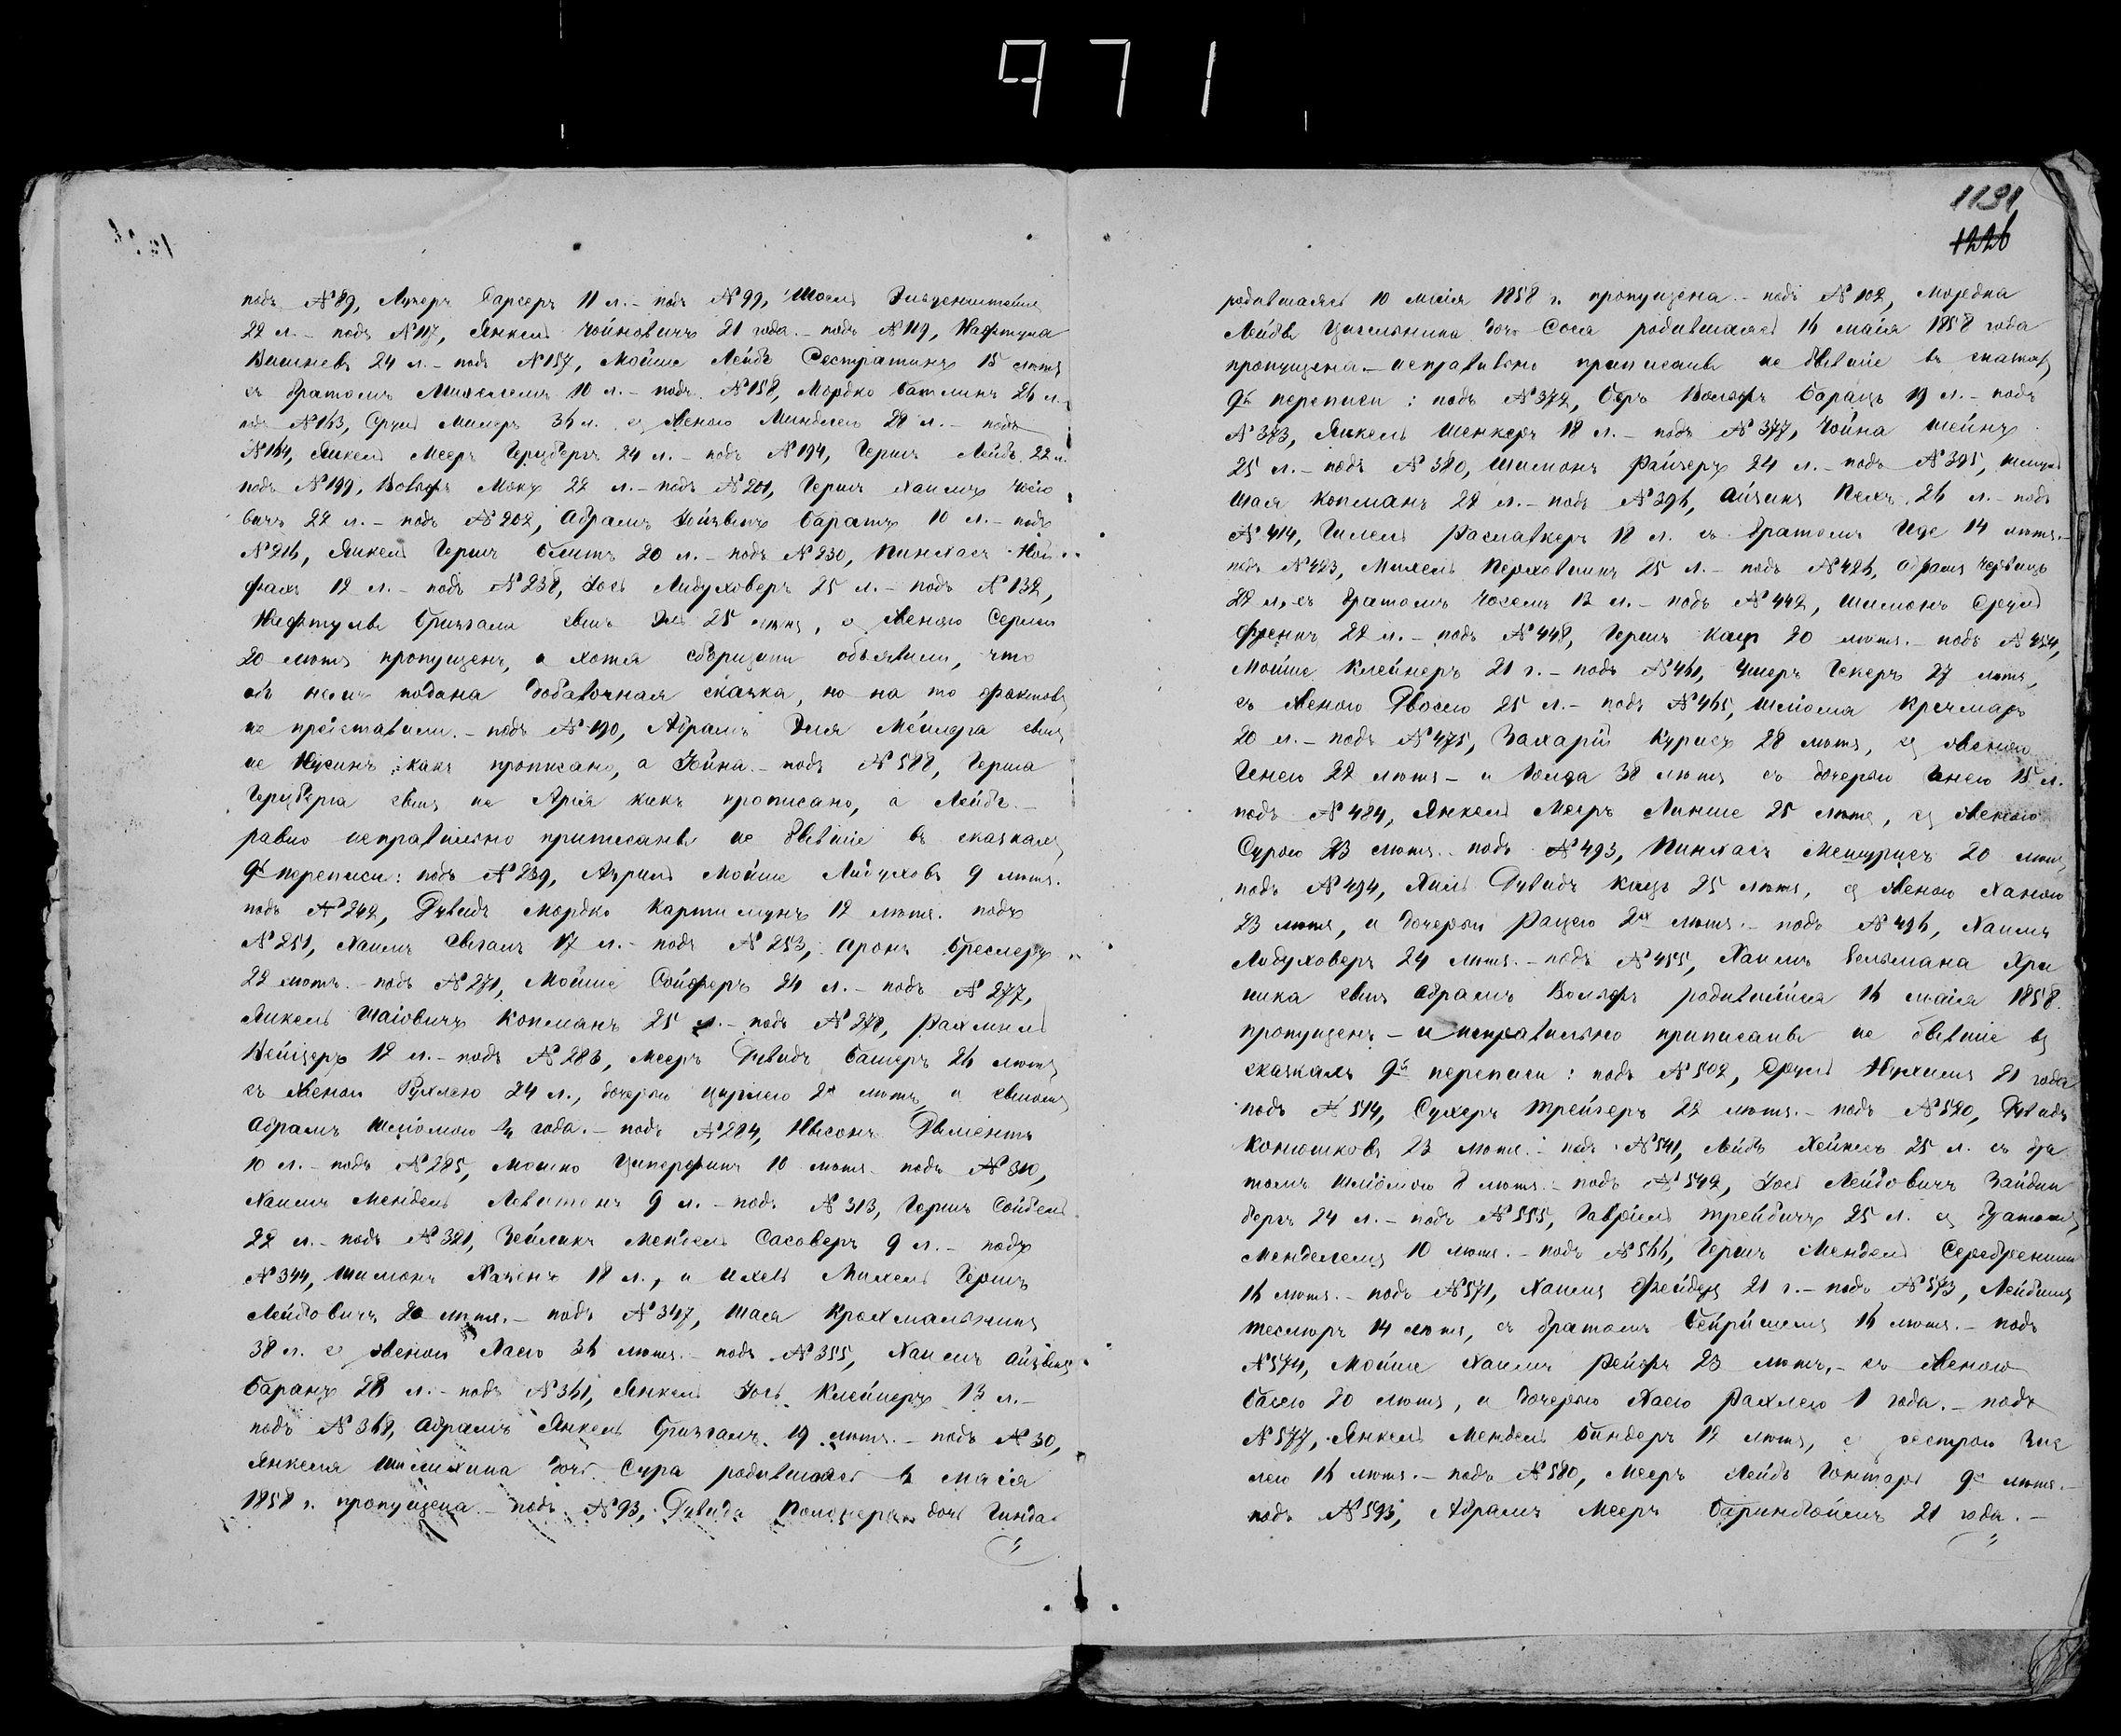 971
1191
1226
подъ № 89, Лузеръ Барсеръ 11 л. – подъ № 99, Шоель
22 л. – подъ № 117, Янкель Чойновичъ 21 года. – подъ № 119, Нафтула
Вишневъ 24 л. – подъ № 157, Мойше Лейбъ Сестратинъ 15 лѣтъ
съ братомъ Михелемъ 10 л. – подъ № 158, Мордко Батлинъ 26 л.
подъ № 163, Сруль Милеръ 36 л. съ женою Минделею 28 л. – подъ
№ 164, Янкель Мееръ Герцбергъ 24 л. – подъ № 194, Гершъ Лейбъ 22 л.
подъ № 199, Вольфъ Мокъ 22 л. – подъ № 201, Гершъ Хаимъ
вичъ 22 л. – подъ № 202, Абрамъ Баратъ 10 л. – подъ
№ 216, Янкель Гершъ Блитъ 20 л. – подъ № 230, Пинхасъ Ной
фахъ 12 л. – подъ № 238, Іось Лидуховеръ 25 л. – подъ № 132,
Нафтулы сынъ 25 лѣтъ, съ женою
20 лѣтъ пропущенъ, а хотя сборщики объявили, что
объ немъ подана добавочная сказка, но на то фактовъ
не представили. – подъ № 190, Абрамъ Эля Мейлера сынъ
не Нусинъ какъ прописано, а Іойна. – подъ № 588, Герша
Герцберга сынъ не Арія какъ прописано, а Лейбъ. –
равно неправильно приписаны не бывшіе въ сказкахъ
9й переписи: подъ № 239, Азриль Мойше Лидуховъ 9 лѣтъ.
подъ № 242, Дувидъ Мордко Картимунъ 12 лѣтъ. подъ
№ 251, Хаимъ 17 л. – подъ № 253, Аронъ Бреслеръ
22 лѣтъ. – подъ № 271, Мойше Сойферъ 24 л. – подъ № 277,
Янкель Шаіовичъ Копманъ 25 л. – подъ № 278, Рахмиль
Нейцеръ 12 л. – подъ № 283, Мееръ Дувидъ Башеръ 26 лѣтъ
съ женою Рухлею 24 л., дочерью Цирлею 2хъ лѣтъ и сыномъ
Абрамъ Шліомою ¼ года. – подъ № 284, Нысонъ Дыментъ
10 л. – подъ № 285, Мошко Циперфинъ 10 лѣтъ – подъ № 310,
Хаимъ Мендель Левитанъ 9 л. – подъ № 313, Гершъ Сойбель
22 л. – подъ № 321, Зейликъ Мендель Сасоверъ 9 л. – подъ
№ 344, Шимонъ Хазенъ 18 л., и Ихель Михель Гершъ
Лейбовичъ 20 лѣтъ. – подъ № 347, Шая Крохмальникъ
38 л. съ женою Хаею 36 лѣтъ. – подъ № 355, Хаимъ Айзыкъ
Баранъ 28 л. – подъ № 361, Янкель Іось Клейнеръ 13 л. –
подъ № 368, Абрамъ Янкель 19 лѣтъ. – подъ № 30,
Янкеля дочь Сура родившаяся 6 маія
1858 г. пропущена. – подъ № 93, Дувида дочь Гинда
родившаяся 10 маія 1858 г. пропущена. – подъ № 102, Мордка
Лейбы Цигельника дочь Сося родившаяся 16 маія 1858 года
пропущена. – неправильно приписаны не бывшіе въ сказкахъ
9й переписи: подъ № 372, Беръ Вольфъ Баранъ 19 л. – подъ
№ 373, Янкель Шенкеръ 18 л. – подъ № 377, Чойна Шейнъ
25 л. – подъ № 380, Шимонъ Файгеръ 24 л. – подъ № 395, Шмуль
Шая Копманъ 22 л. – подъ № 396, Айзикъ Пехъ 26 л. – подъ
№ 414, Гилель Раславкеръ 18 л. съ братомъ Иде 14 лѣтъ. –
подъ № 423, Михель Перховникъ 25 л. – подъ № 426, Абрамъ
22 л. съ братомъ Іоселемъ 13 л. – подъ № 442, Шимонъ Сруль
Френкъ 22 л. – подъ № 448, Гершъ Кацъ 20 лѣтъ. – подъ № 454,
Мойше Клейнеръ 21 г. – подъ № 461, Ушеръ Гекеръ 27 лѣтъ,
съ женою Двосею 25 л. – подъ № 465, Шліома Кречмаръ
20 л. – подъ № 475, Захарій Курисъ 28 лѣтъ, съ женою
Генею 22 лѣтъ – и 38 лѣтъ съ дочерью 15 л.
подъ № 484, Янкель Мееръ Линше 25 лѣтъ, съ женою
Сурою 23 лѣтъ. подъ № 493, Пинхасъ 20 лѣтъ,
подъ № 494, Хиль Дувидъ Кацъ 25 лѣтъ, съ женою Ханою
23 лѣтъ, и дочерью Рацею 2хъ лѣтъ. – подъ № 496, Хаимъ
Лидуховеръ 24 лѣтъ. – подъ № 455, Хаимъ Гельмана
ника сынъ Абрамъ Вольфъ родившійся 16 маія 1858.
пропущенъ – и неправильно приписаны не бывшіе въ
сказкахъ 9й переписи: подъ № 502, Сруль Нухимъ 21 года
подъ № 514, Сухеръ Трейгеръ 22 лѣтъ. – подъ № 520, Дувидъ
Конюшковъ 23 лѣтъ. – подъ № 541, Лейбъ Хейкесъ 25 л. съ бра
томъ Шліомою 8 лѣтъ. – подъ № 542, Іось Лейбовичъ Зайдин
бергъ 24 л. – подъ № 555, Гаврііль Трейбичъ 25 л. съ братомъ
Менделемъ 10 лѣтъ. – подъ № 566, Гершъ Мендель
16 лѣтъ. – подъ № 571, Хаимъ Фрейдъ 21 г. – подъ № 573, Лейбишъ
Теслюръ 14 лѣтъ, съ братомъ Бейришемъ 16 лѣтъ. – подъ
№ 574, Мойше Хаимъ Рейфъ 23 лѣтъ, – съ женою
Басею 20 лѣтъ, и дочерью Хаею Рахлею 1 года. – подъ
№ 577, Янкель Мендель Биндеръ 12 лѣтъ, съ сестрою Зис
лею 16 лѣтъ. – подъ № 580, Мееръ Лейбъ Гонтаръ 9 лѣтъ. –
подъ № 593, Абрамъ Мееръ Баринбоймъ 21 года. –